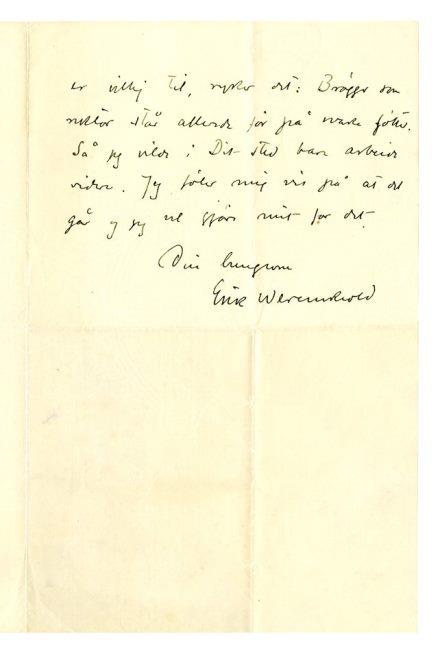 er villig til, nytter det: Brøgger som
rektor står allerede før på svake føtter.
Så jeg vilde i Dit sted bare arbeide
videre. Jeg føler mig vis på at det
går og jeg vil gjøre mit for det.
Din hengivne
Erik Werenskiold